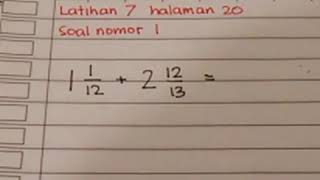 Latihan 7 halaman 20
Soal nomor 1
1 1/12 + 2 12/13 =